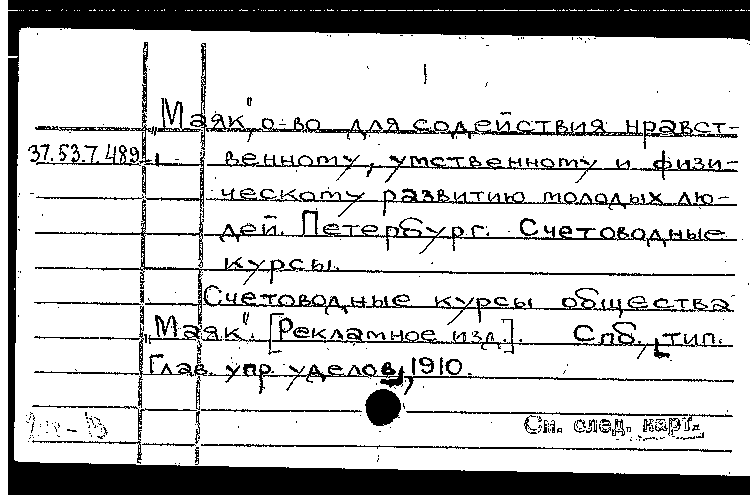 „Маяк", о-во для содействия нравст-
37.53.7.489
венному, умственному и физи-
ческому развитию молодых лю-
дей. Петербург. Счетоводные
курсы.
Счетоводные курсы общества
„Маяк". [Рекламное изд.]. Спб., тип.
Глав. упр. уделов, 1910.
См. след. карт.